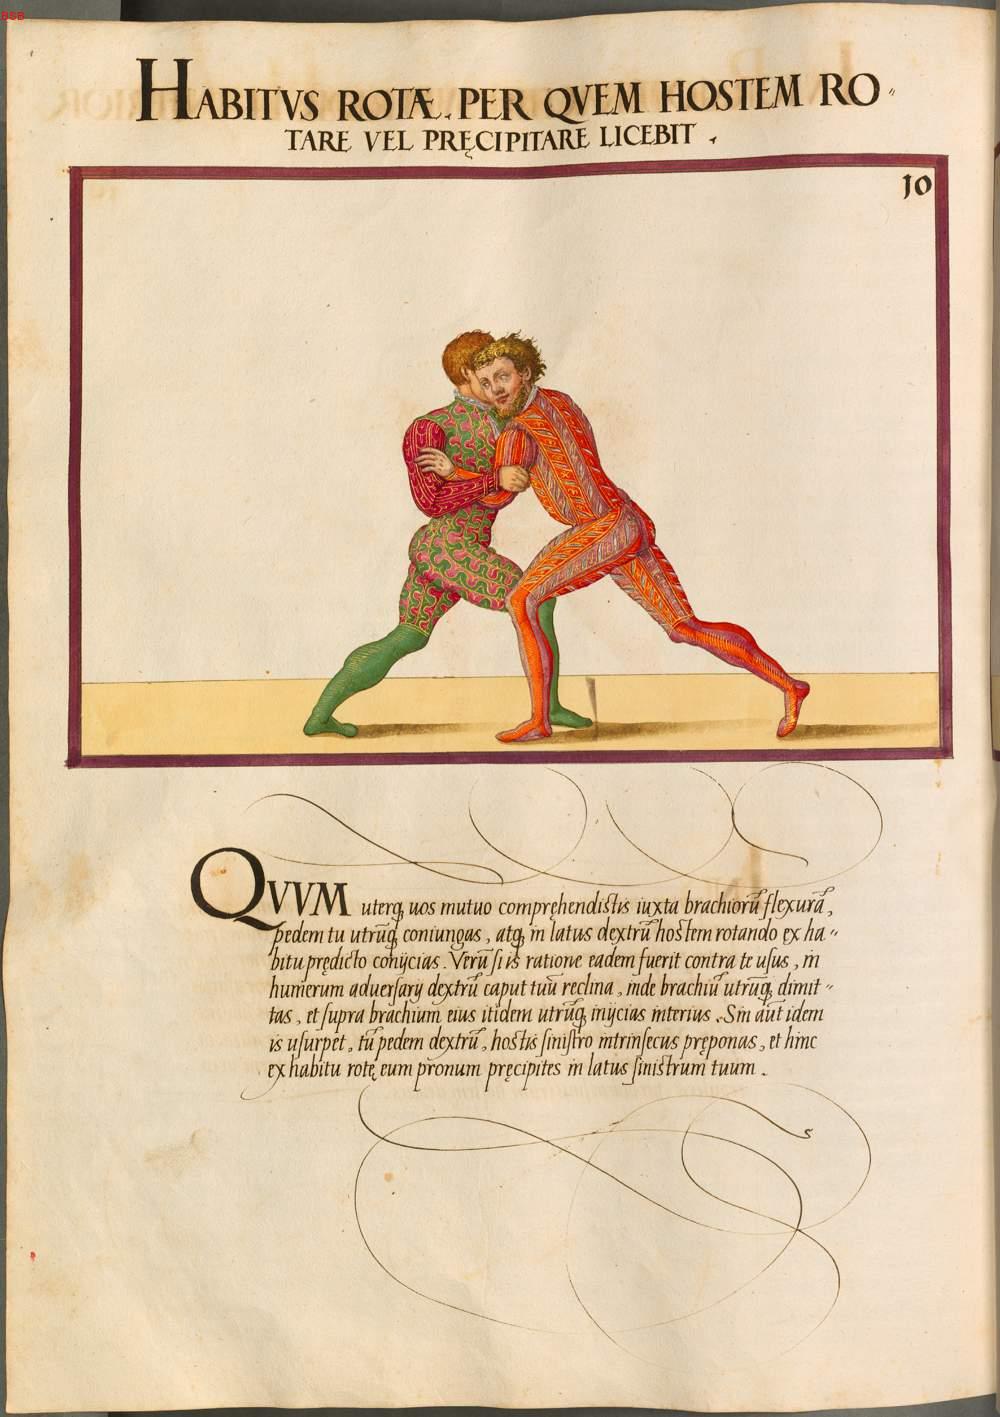 BSB
HABITVS ROTÆ, PER QVEM HOSTEM RO〃
TARE VEL PRĘCIPITARE LICEBIT .
10
QVVM uterq; uos mutuo compręhendistis iuxta brachiorū flexurā,
pedem tu utrūq; coniungas, atq; in latus dextrū hostem rotando ex ha〃
bitu prędicto conijcias. Verū si is ratione eadem fuerit contra te usus, in
humerum aduersarij dextrū caput tuū reclina, inde brachiū utrūq; dimit〃
tas, et supra brachium eius itidem utrūq; inijcias interius. Sin aūt idem
is usurpet, tū pedem dextrū, hostis sinistro intrinsecus pręponas, et hinc
ex habitu rotę eum pronum pręcipites in latus sinistrum tuum .